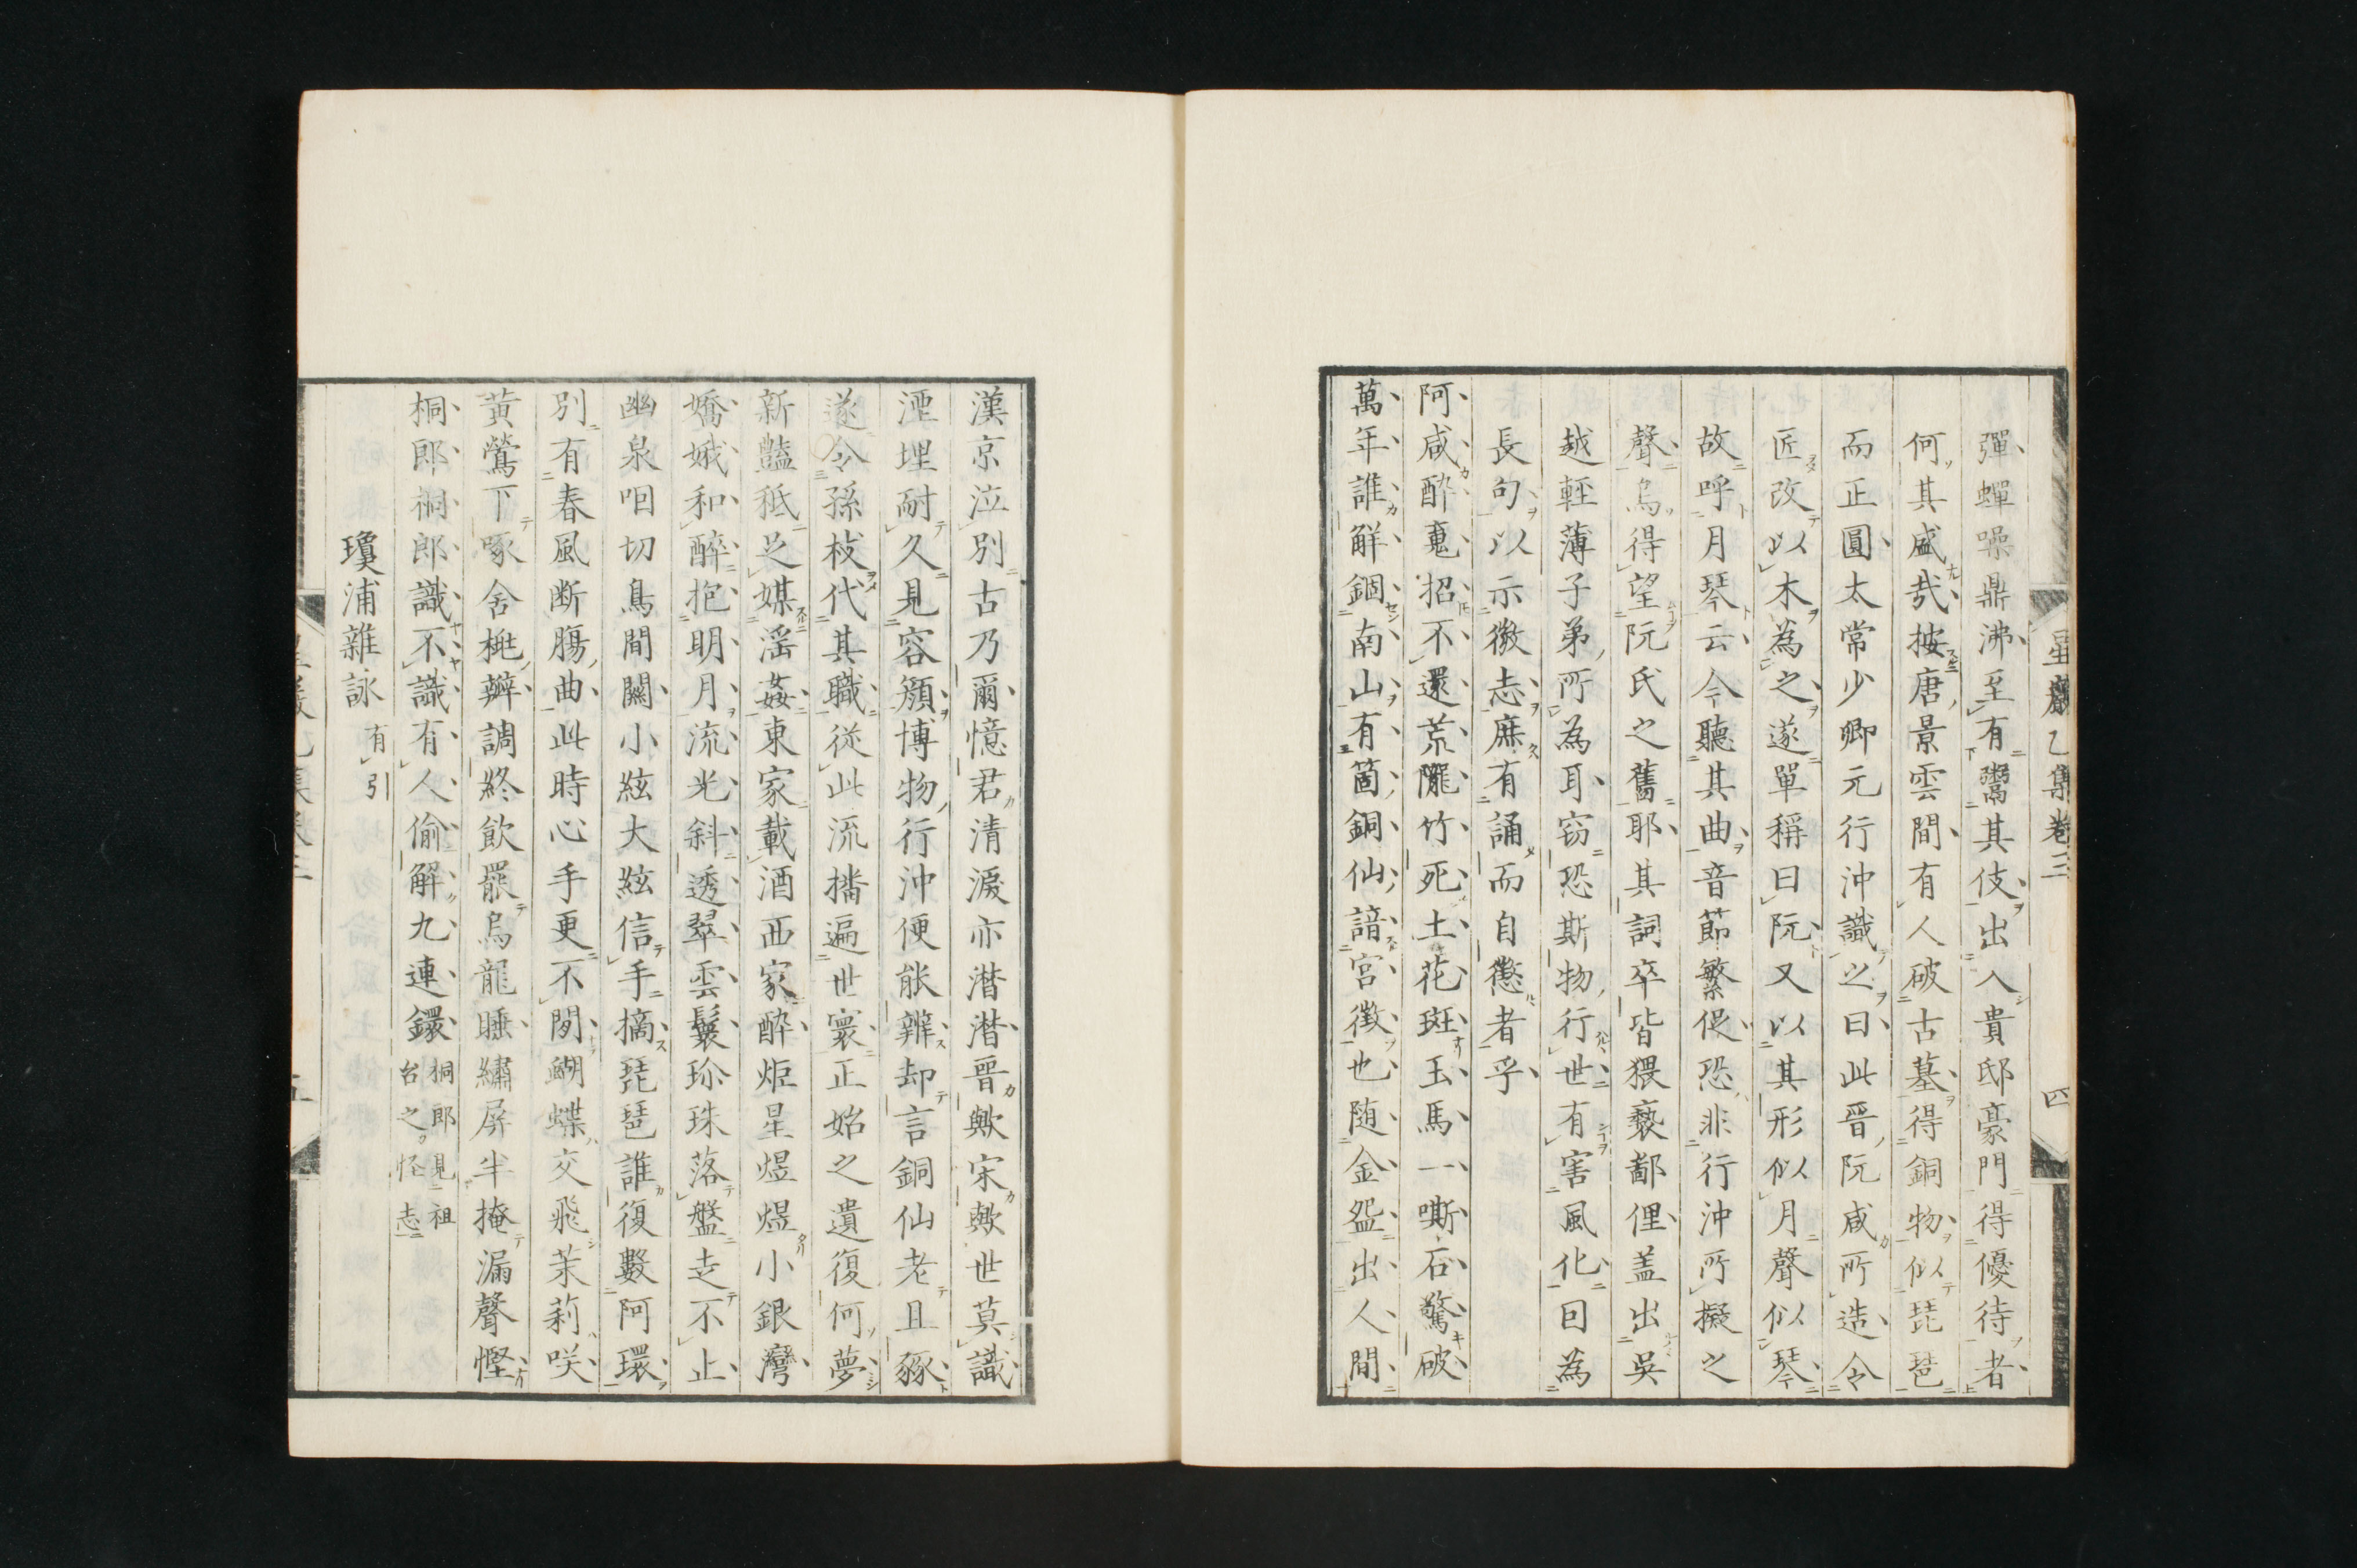 星巖乙集卷三
四
彈蟬噪鼎沸至有鬻其伎出入貴邸豪門得優待者
何其盛哉按唐景雲間有人破古墓得銅物似琵琶
而正圓太常少卿元行沖識之曰此晉阮咸所造令
匠改以木為之遂單稱曰阮又以其形似月聲似琴
故呼月琴云今聽其曲音節繁促恐非行沖所擬之
聲烏得望阮氏之舊耶其詞卒皆猥褻鄙俚盖出吳
越輕薄子弟所為耳窃恐斯物行世有害風化因為
長句以示徵志庶有誦而自懲者乎
阿咸醉䰟招不還荒隴竹死土花斑玉馬一嘶石驚破
萬年誰解錮南山有箇銅仙諳宮徵也随金盌出人間
漢京泣別古乃爾憶君清淚亦潜潜晉歟宋歟世莫識
湮埋耐久見容顏博物行沖便能辨却言銅仙老且豩
遂令孫枝代其職從此流播遍世寰正始之遺復何夢
新豔秪足媒淫姦東家載酒西家醉炬星煜煜小銀灣
嬌娥和醉抱明月流光斜透翠雲鬟珎珠落盤走不止
幽泉咽切鳥間關小絃大絃信手摘琵琶誰復數阿環
別有春風断腸曲此時心手更不閒蝴蝶交飛茉莉咲
黄鶯下啄含桃瓣調終飲罷烏龍睡繡屏半掩漏聲慳
桐郎桐郎識不識有人偷解九連鐶桐郎見祖
台之怪志
瓊浦雜詠有引